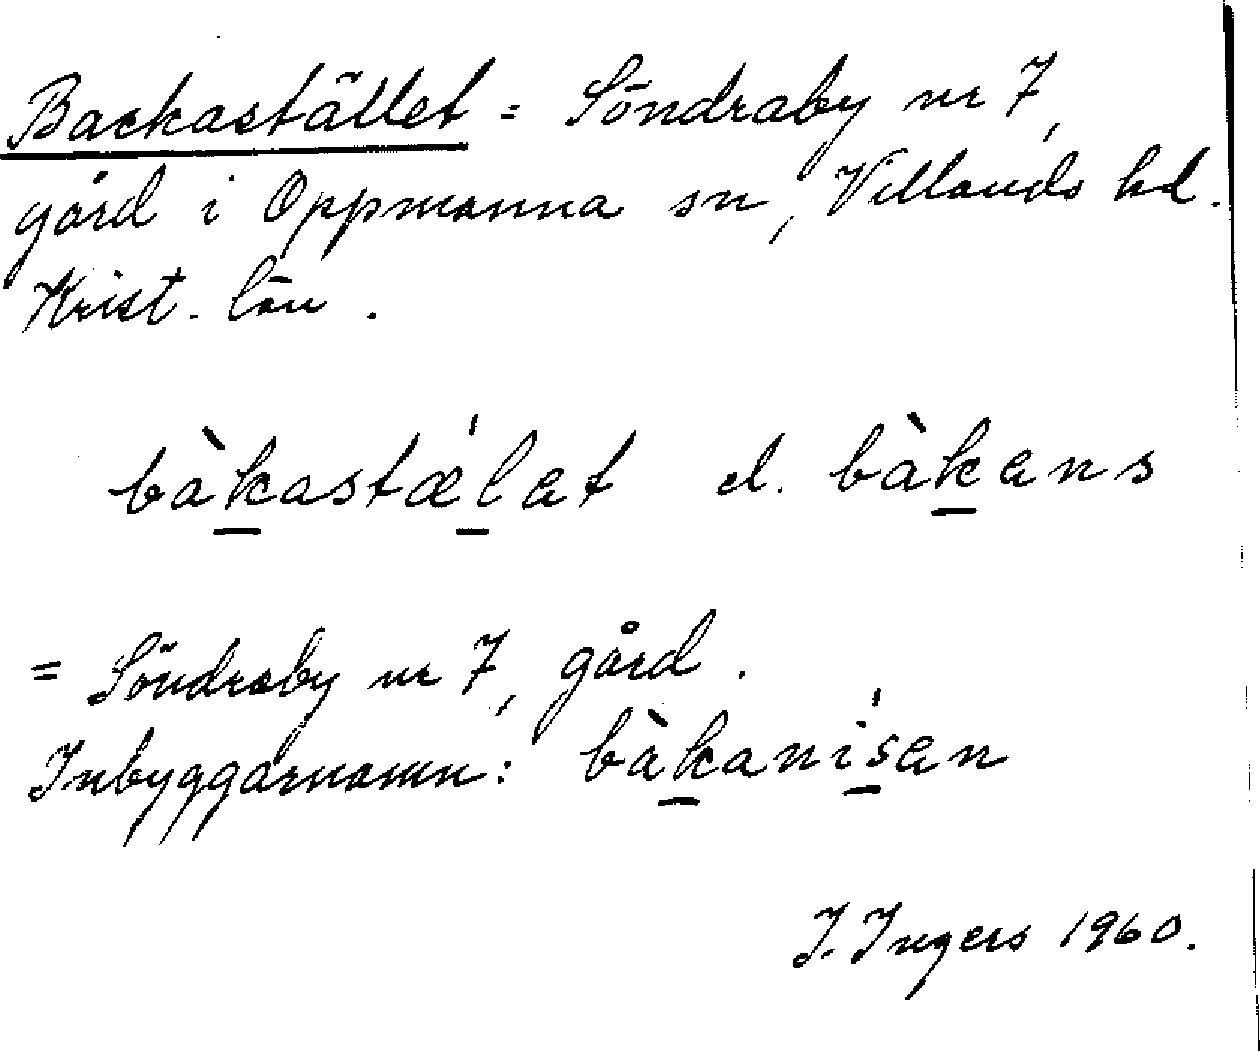 Backastället = Söndraby nr 7,
gård i Oppmanna sn, Villands hd.
Krist. län.
bàkastæ'lat el. bàkans
= Söndraby nr 7, gård.
Inbyggarnamn: bàkani'san
I. Ingers 1960.